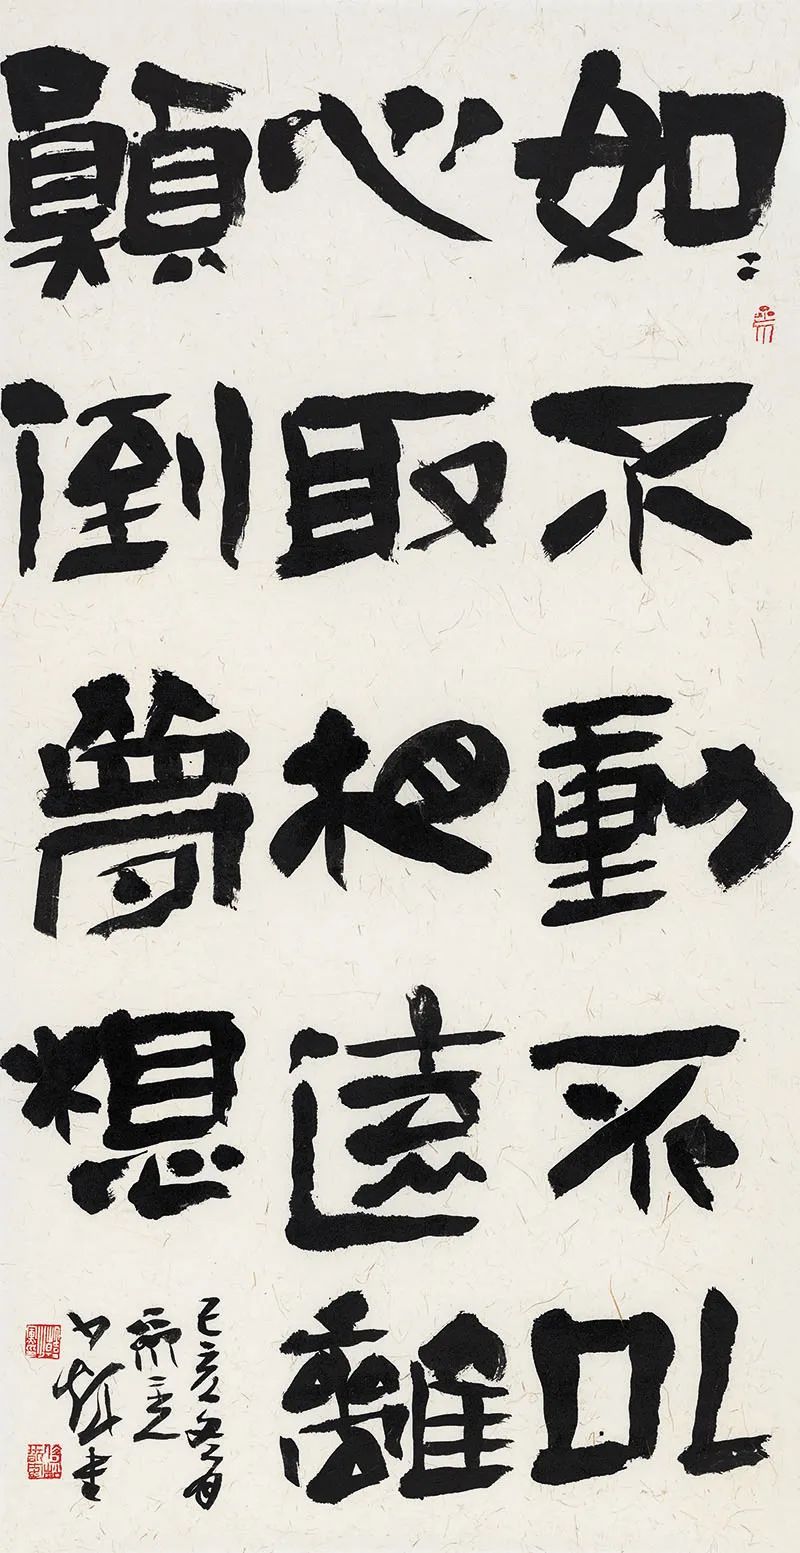 如〻不動不以
心取相遠離
顛倒夢想
己亥冬月
書